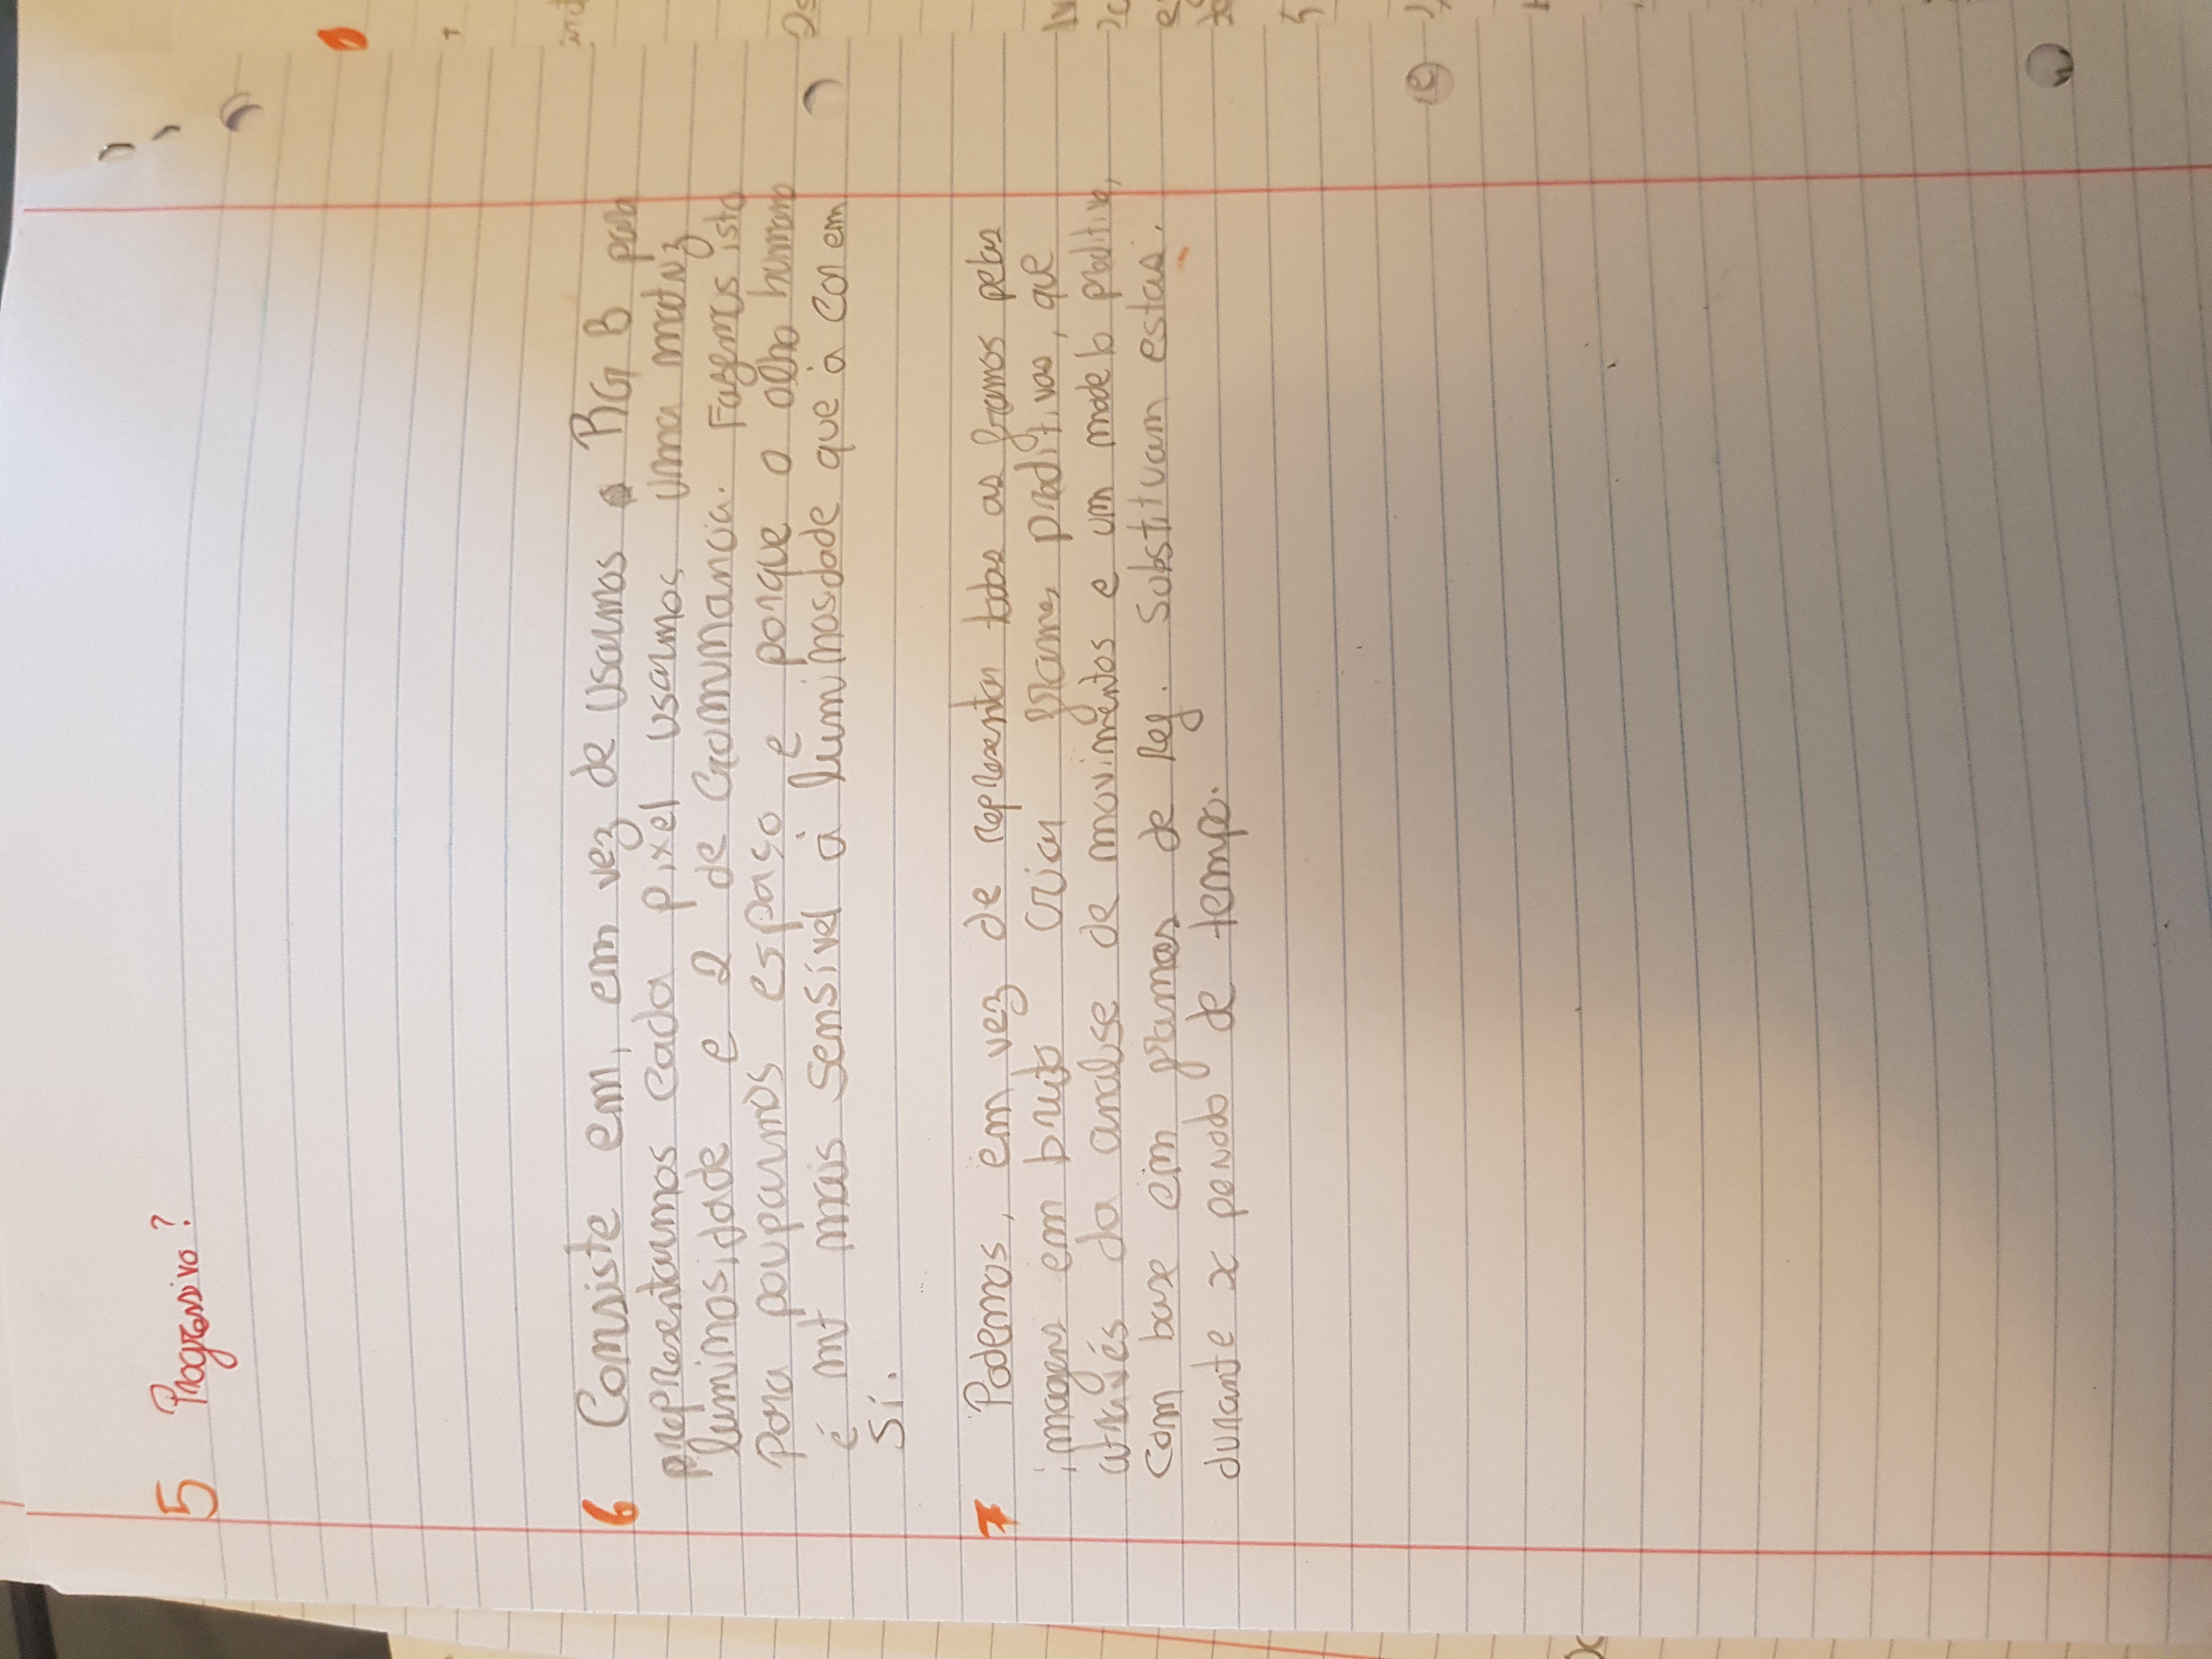 5 Progressivo?
6 Consiste em, em vez de usarmos RGB para
representarmos cada pixel usarmos uma matriz
luminosidade e 2 de Crominancia. Fazemos isto
para pouparmos espaço e porque o olho humano
é mt mais sensível à luminosdade que à cor em
si.
7 Podemos, em vez de representar todas as frames pelas
imagens em bruto criar frames preditivas, que
através da analise de movimentos e um modelo preditivo,
com base em frames de Ref. Substituam estas.
durante x periodo de tempo.